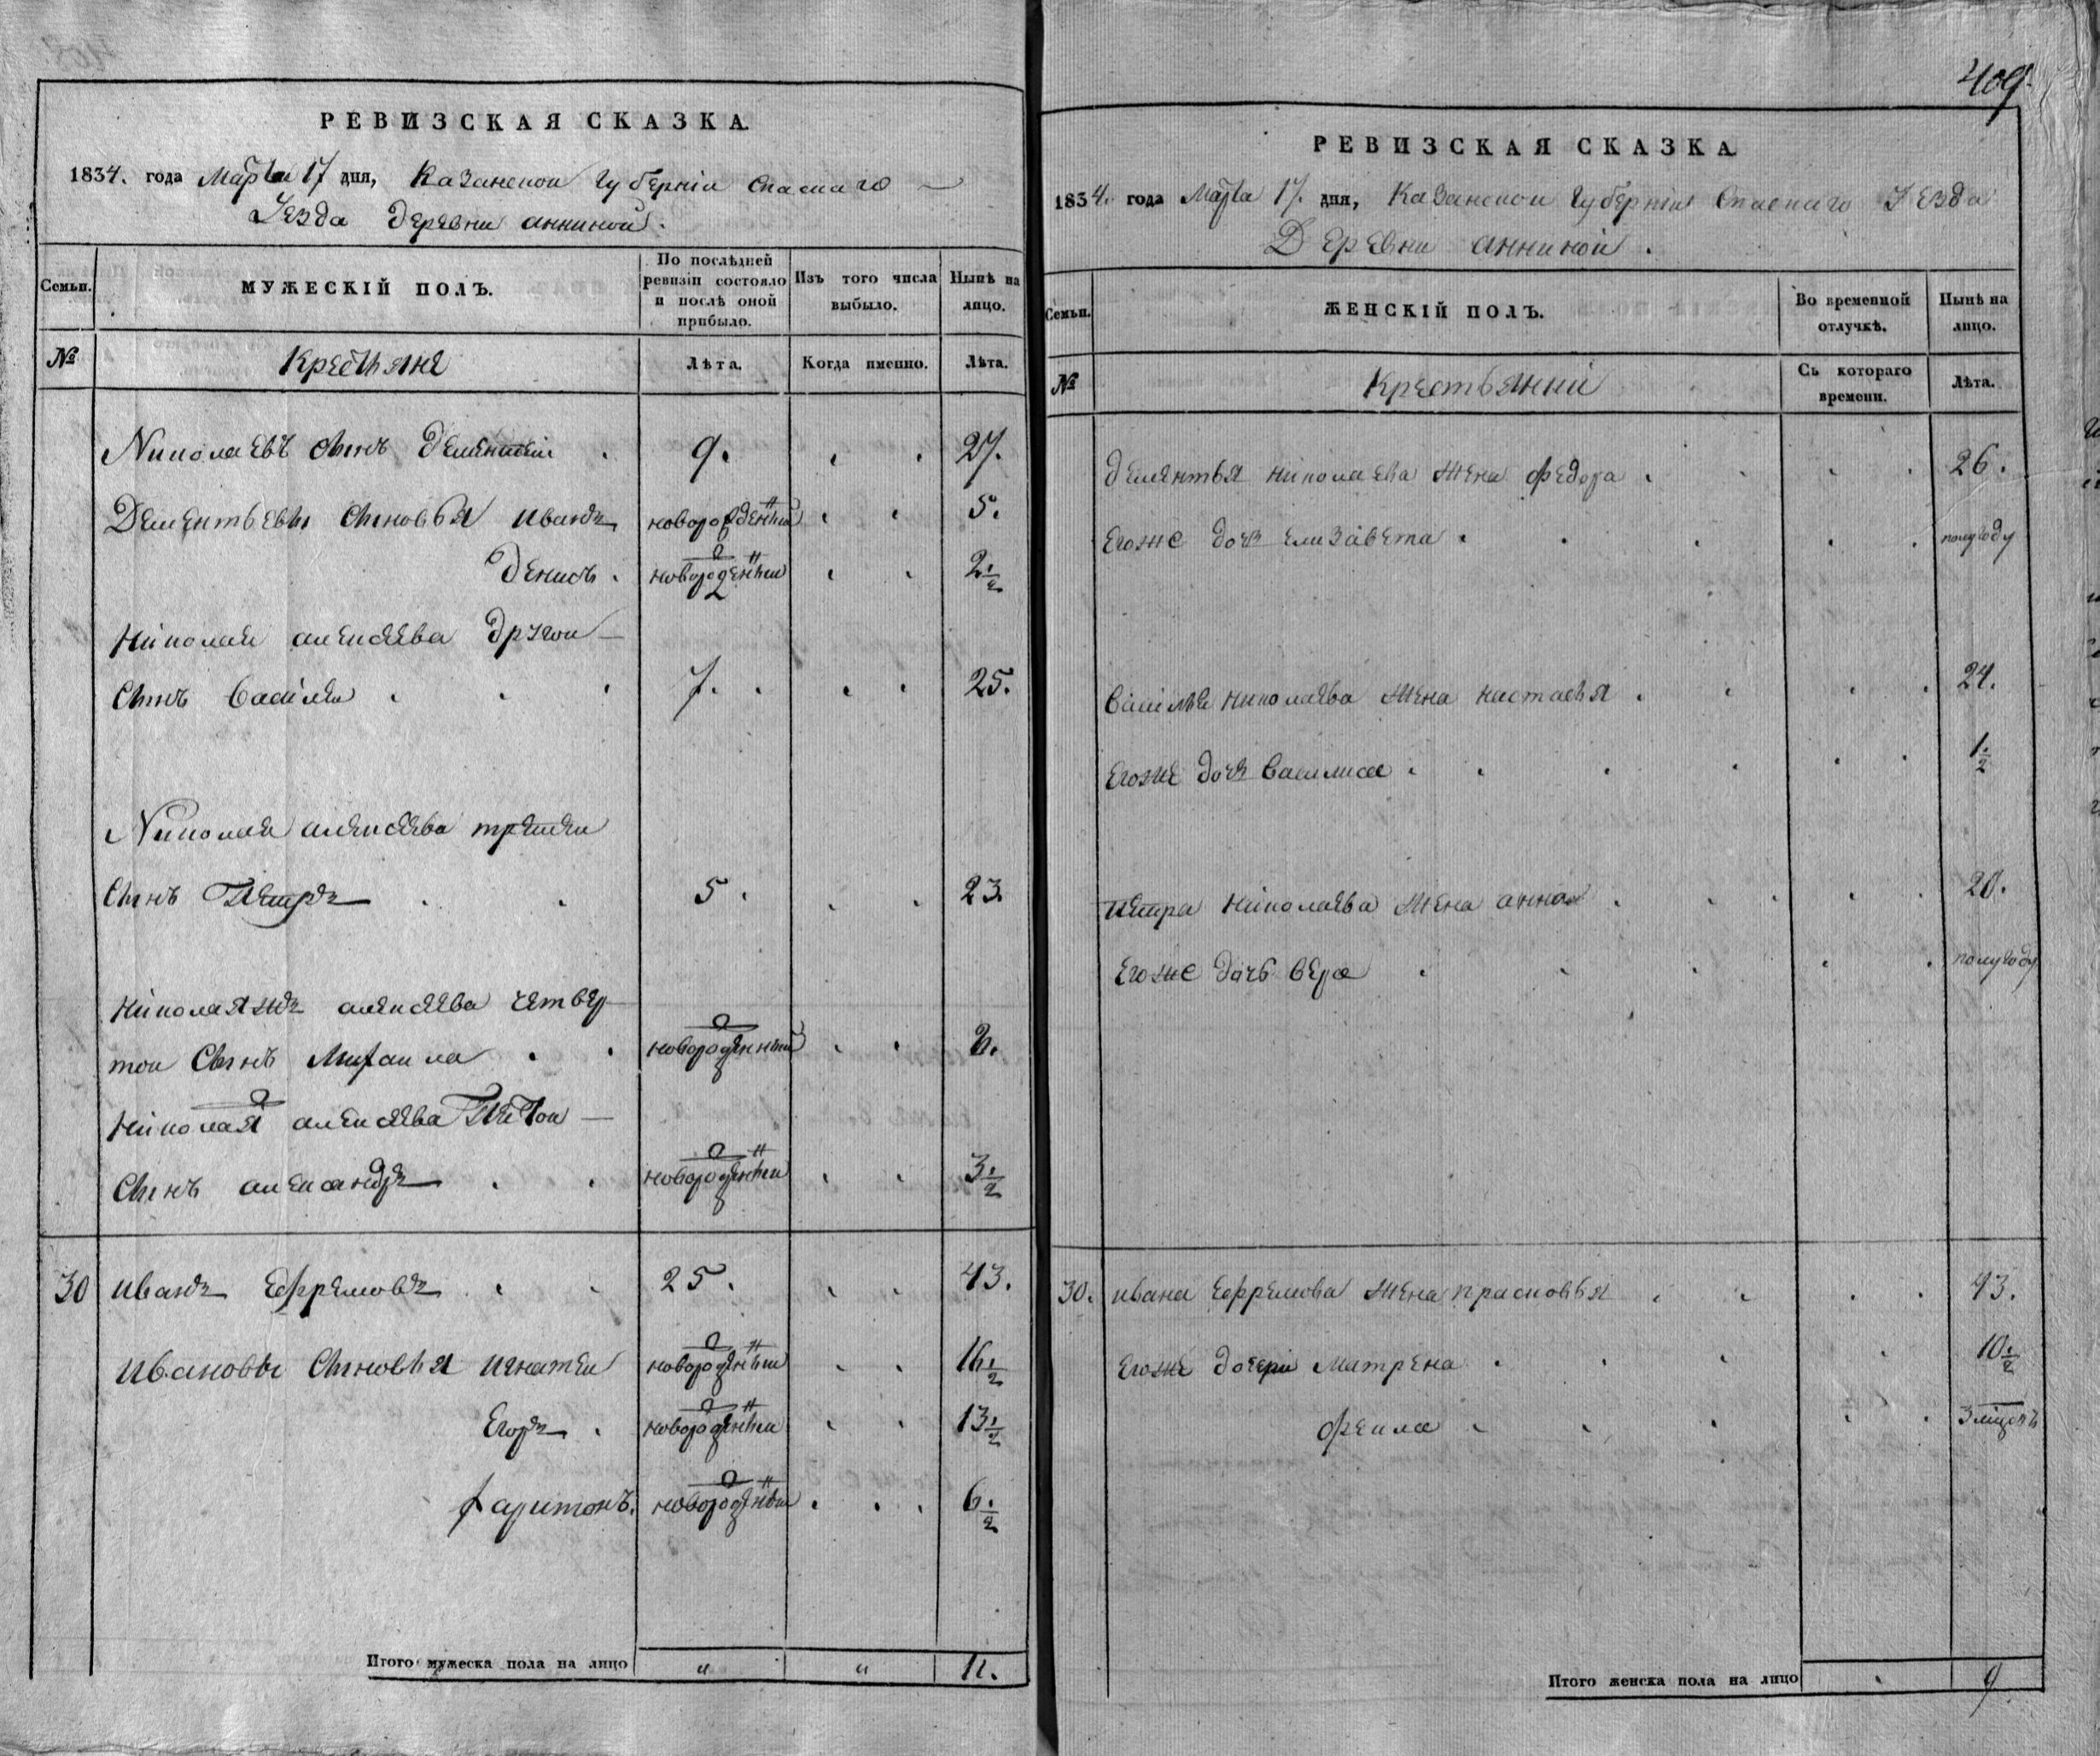 РЕВИЗСКАЯ СКАЗКА.
1834. года Марта 17 дня, Казанской Губерніи Спаскаго
Уезда деревни анниной.
Семьи.
МУЖЕСКІЙ ПОЛЪ.
По послѣдней ревизіи состояло и послѣ оной прибыло.
Изъ того числа выбыло.
Нынѣ на лицо.
№
Крестьяне
Лѣта.
Когда именно.
Лѣта.
Николаевъ сынъ дементеи 9. 27.
Дементьевы сыновья иванъ новорожденныи 5.
денисъ. новорожденныи 2 1/2
Николая алексеева другои
сынъ василеи 7. 25.
Николая алексеева третеи
сынъ Петръ 5. 23.
Николаяжъ алексеева четвер
тои сынъ михаила новорожденный
Николая алексеева пятои
сынъ александръ новорожденныи 3 1/2
30 иванъ Ефремовъ 25. 43.
ивановы сыновья игнатеи новорожденныи 16 1/2
Егоръ новорожденныи 13 1/2
харитонъ. новорожденныи 6 1/2
Итого мужеска пола на лицо " " 11.
409.
РЕВИЗСКАЯ СКАЗКА
1834. года Марта 17. дня, Казанской Губерніи Спаскаго Уезда
Деревни анниной.
Семьи.
ЖЕНСКІЙ ПОЛЪ.
Во временной отлучкѣ.
Нынѣ на лицо.
№
Крестьянки
Съ котораго времени.
Лѣта.
дементья николаева жена федора 26.
Егоже дочь елизавета полугоду
василья николаева жена настасья 24.
Егоже дочь василиса 1 1/2
петра николаева жена анна 20.
Егоже дочь вера полугоду
30. ивана Ефремова жена прасковья 43.
Егоже дочери матрена 10 1/2
фекла 3 мцовъ
Итого женска пола на лицо 9